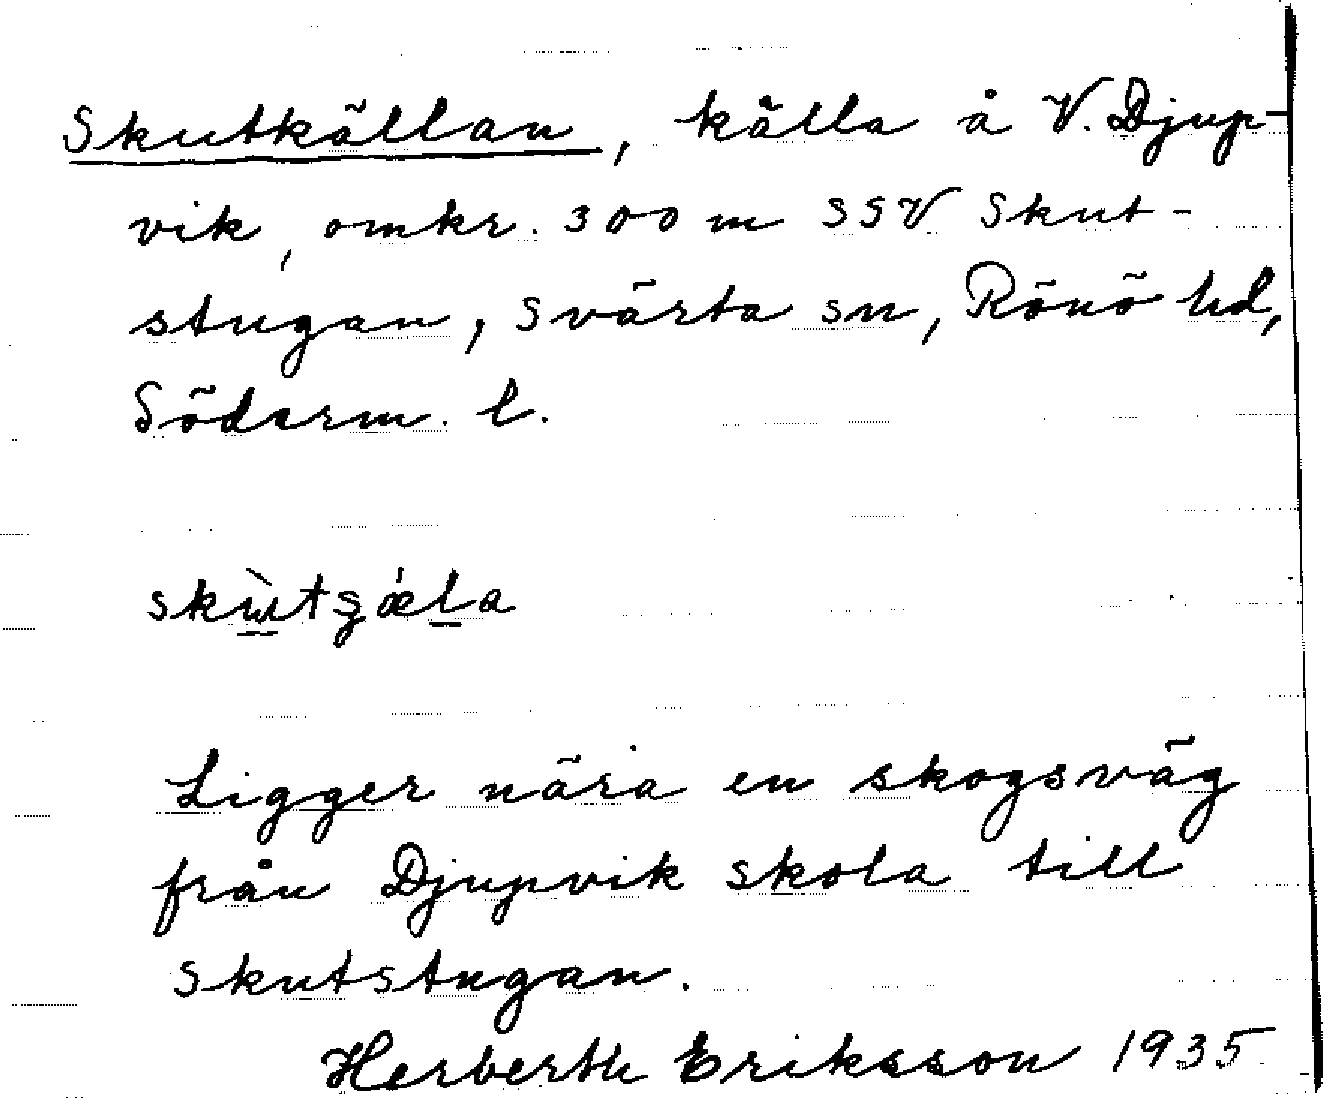 Skutkällan, källa å V. Djup-
vik, omkr. 300 m SSV Skut-
stugan, Svärta sn, Rönö hd,
Söderm. l.
Ligger nära en skogsväg
från Djupvik skola till
Skutstugan.
Herberth Eriksson 1935